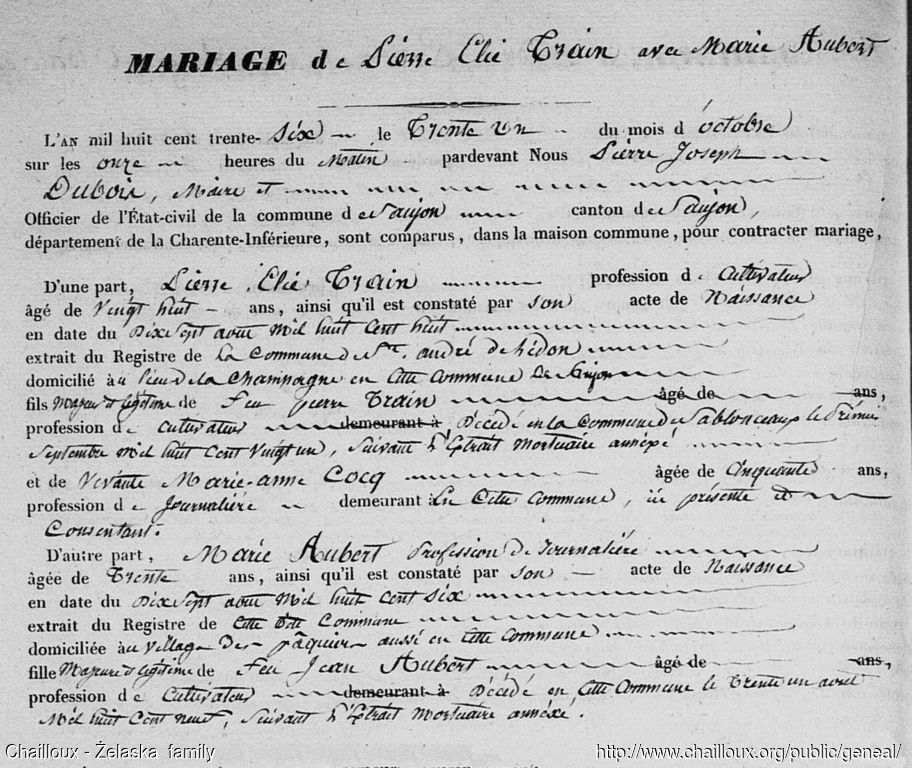 MARIAGE de Pierre Elie Train avec Marie Aubert
L'AN mil huit cent trente-six le Trente un du mois d'octobre
sur les onze heures du Matin pardevant Nous Pierre Joseph
Dubois, Maire et
Officier de l'État-civil de la commune de Saujon canton de Saujon,
département de la Charente-Inférieure, sont comparus, dans la maison commune, pour contracter mariage,
D'une part, Pierre Elie Train profession de Cultivateur
âgé de Vingt huit ans, ainsi qu'il est constaté par son acte de Naissance
en date du Dix sept aout Mil huit Cent huit
extrait du Registre de la Commune de St. andré de Lidon
domicilié au lieu de la Champagne en Cette Commune De Saujon
fils Majeur et légitime de Feu pierre Train âgé de ans,
profession de Cultivateur demeurant à Décédé en la Commune de Sablonceaux le Premier
Septembre Mil huit Cent Vingt un, Suivant l'Extrait Mortuaire annéxé
et de Vivante Marie-anne Cocq âgée de Cinquante ans,
profession de Journalière demeurant En Cette Commune, ici présente et
Consentant.
D'autre part, Marie Aubert Profession de Journalière
âgée de Trente ans, ainsi qu'il est constaté par son acte de Naissance
en date du Dix Sept aout Mil huit Cent Six
extrait du Registre de Cette Commune
domiciliée au Village Des pâquier aussi en Cette Commune
fille Majeure et légitime de Feu Jean Aubert âgé de ans,
profession de Cultivateur demeurant à Décédé en Cette Commune le Trente un avril
Mil huit Cent neuf, Suivant l'Extrait Mortuaire annéxé.
Chailloux - Żelaska family
http://www.chailloux.org/public/geneal/